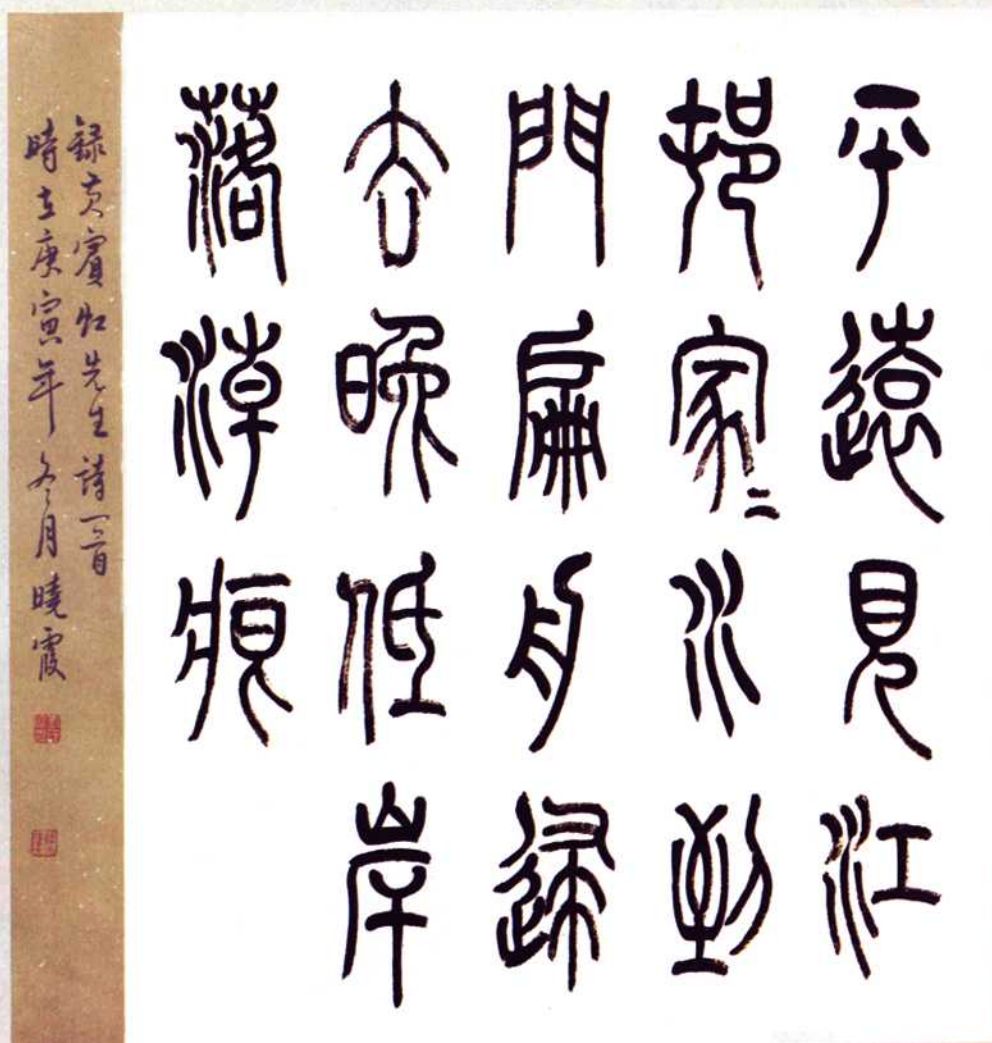 平遠見江
邨家〻水到
門扁舟歸
去晚低岸
落潮痕
錄黃賓虹先生詩一首
時在庚寅年冬月曉霞